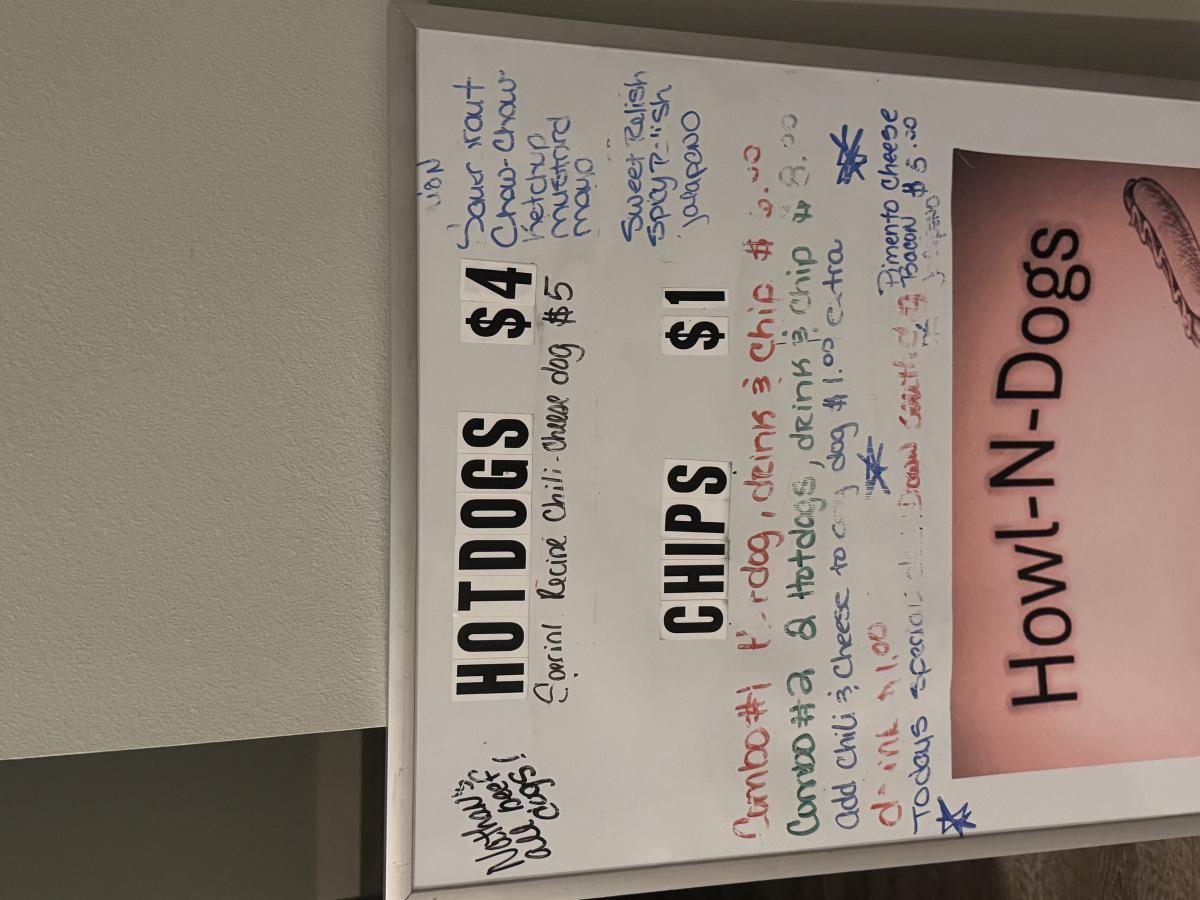 Nathan's
all beef
dogs!
HOTDOGS $4
Special Recipe Chili-cheese dog $5
Sauer kraut
Chow-Chow
Ketchup
mustard
mayo
CHIPS $1
Sweet Relish
Spicy Relish
jalapeno
Combo #1 drink & chip $
Combo #2 2 Hotdogs, drink & chip $8.00
add chili & cheese to any dog $1.00 extra
drink $1.00
Todays special Down South
Pimento cheese
Bacon $5.00
Howl-N-Dogs